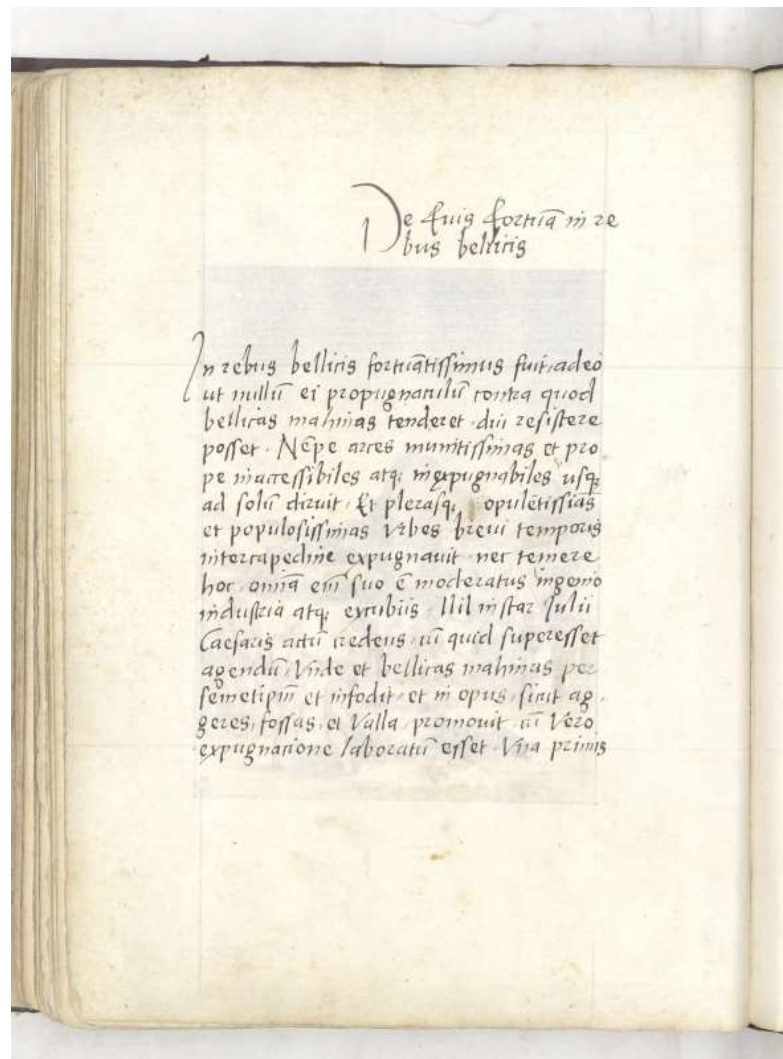 De suis fortunā in re
bus bellicis
In rebus bellicis fortunātissimus fuit, adeo
ut nullū ei propugnaculū contra quod
bellicas mahinas tenderet, diu resistere
posset. Nēpe arces munitissimas et pro
pe inaccessibiles atq; inexpugnabiles usq;
ad solū diruit. Et plerasq; opulētissiās
et populosissimas urbes brevi temporis
intercapedine expugnauit nec temere
hoc, omīa eīm suo ē moderatus ingenio
industria atq; excubiis. Nil instar Julii
Caesaris actū credens, cū quid superesset
agendū. Vnde et bellicas mahinas per
semetipm̄ et infodit, et in opus, sicut ag,
geres, fossas, et Valla, promouit, cū Vero
expugnatione laboratū esset, Vna primis